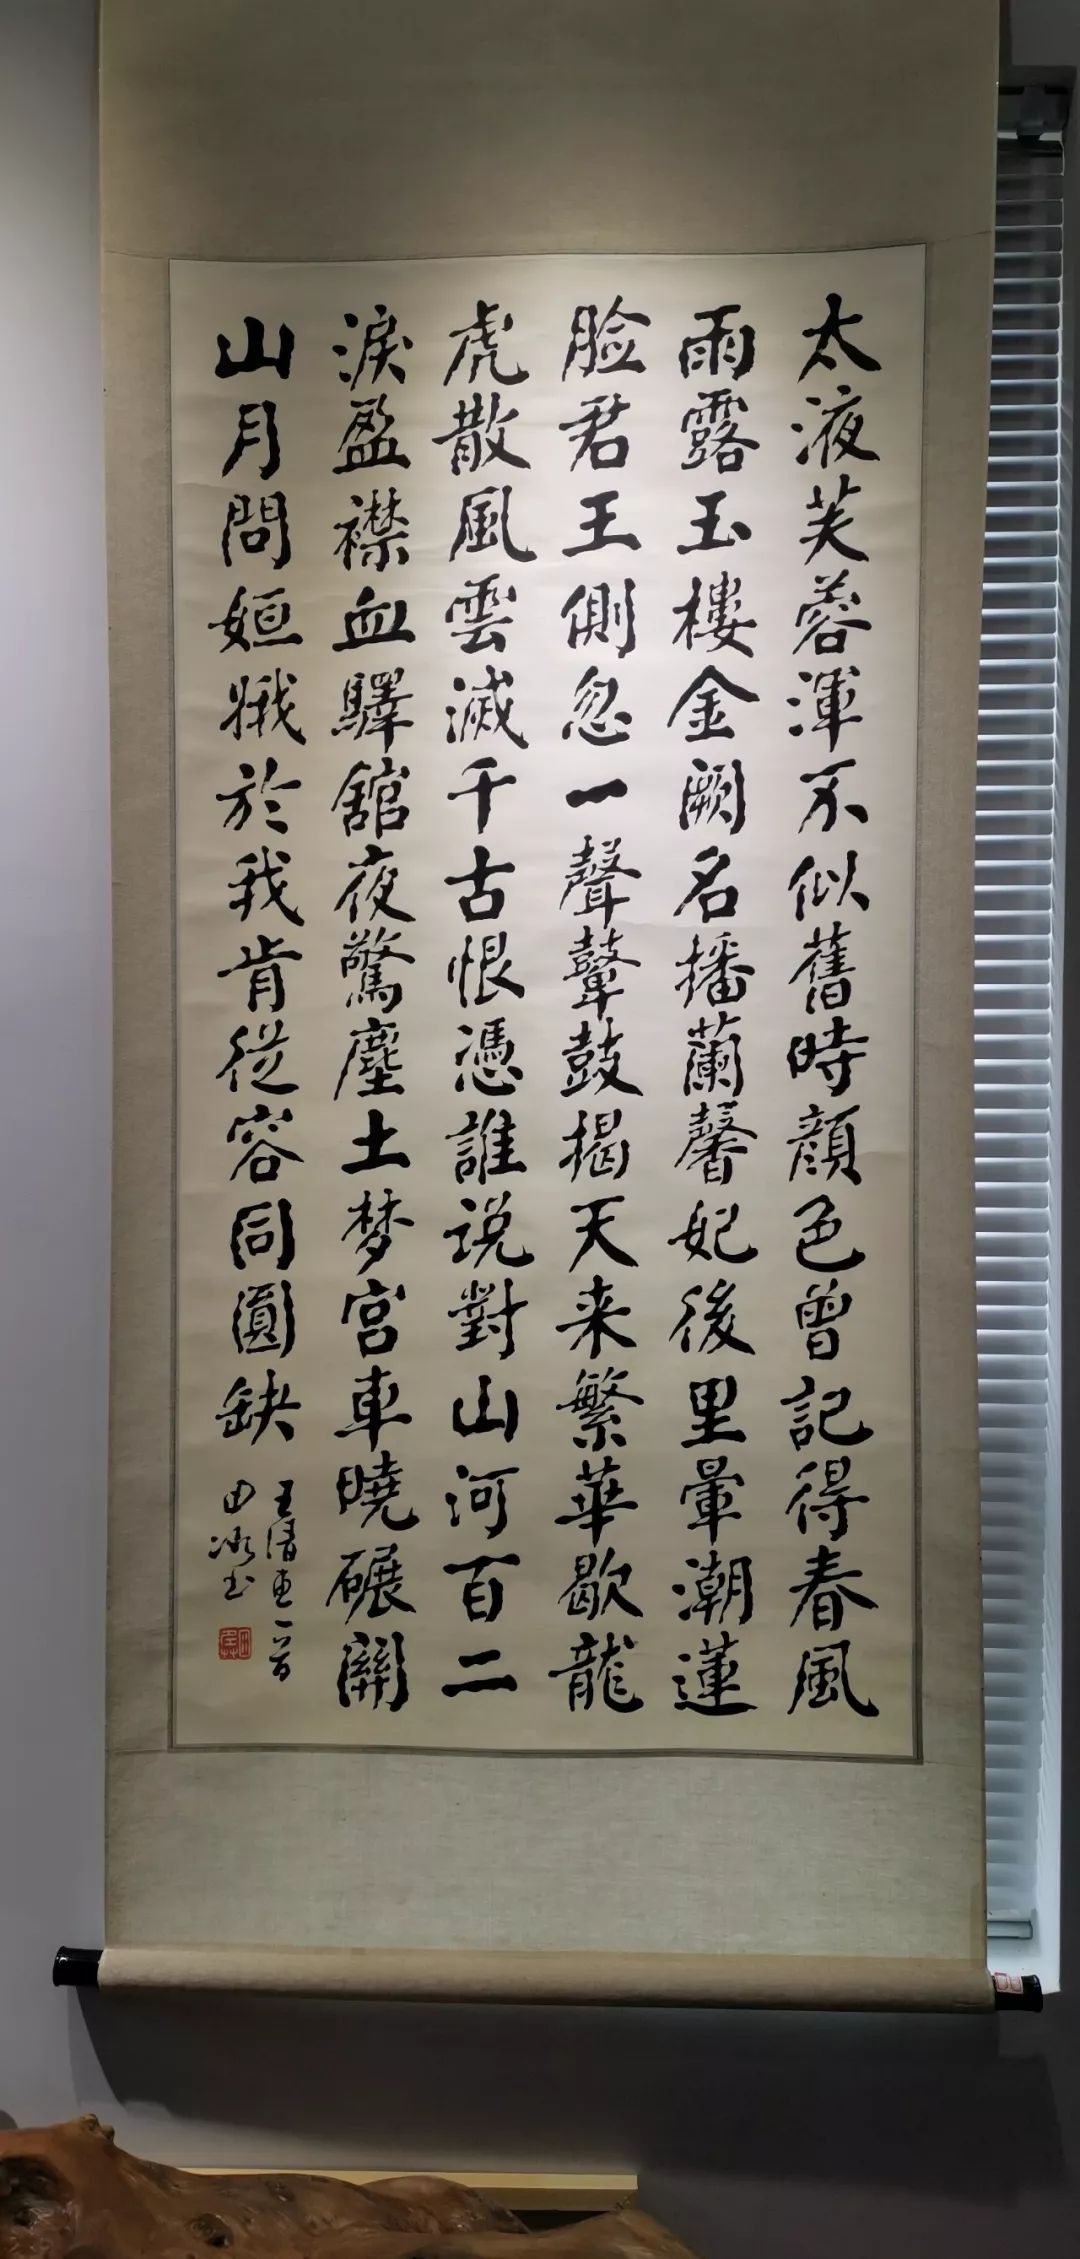 太液芙蓉渾不似舊時顔色曾記得春風
雨露玉樓金闕名播蘭馨妃後里暈潮蓮
脸君王側忽一聲鼙鼓揭天来繁華歇龍
虎散風雲滅千古恨憑誰说對山河百二
淚盈襟血驛舘夜驚塵土梦宮車曉碾關
山月問姮娥於我肯從容同圓缺
王清惠一首
田冰书